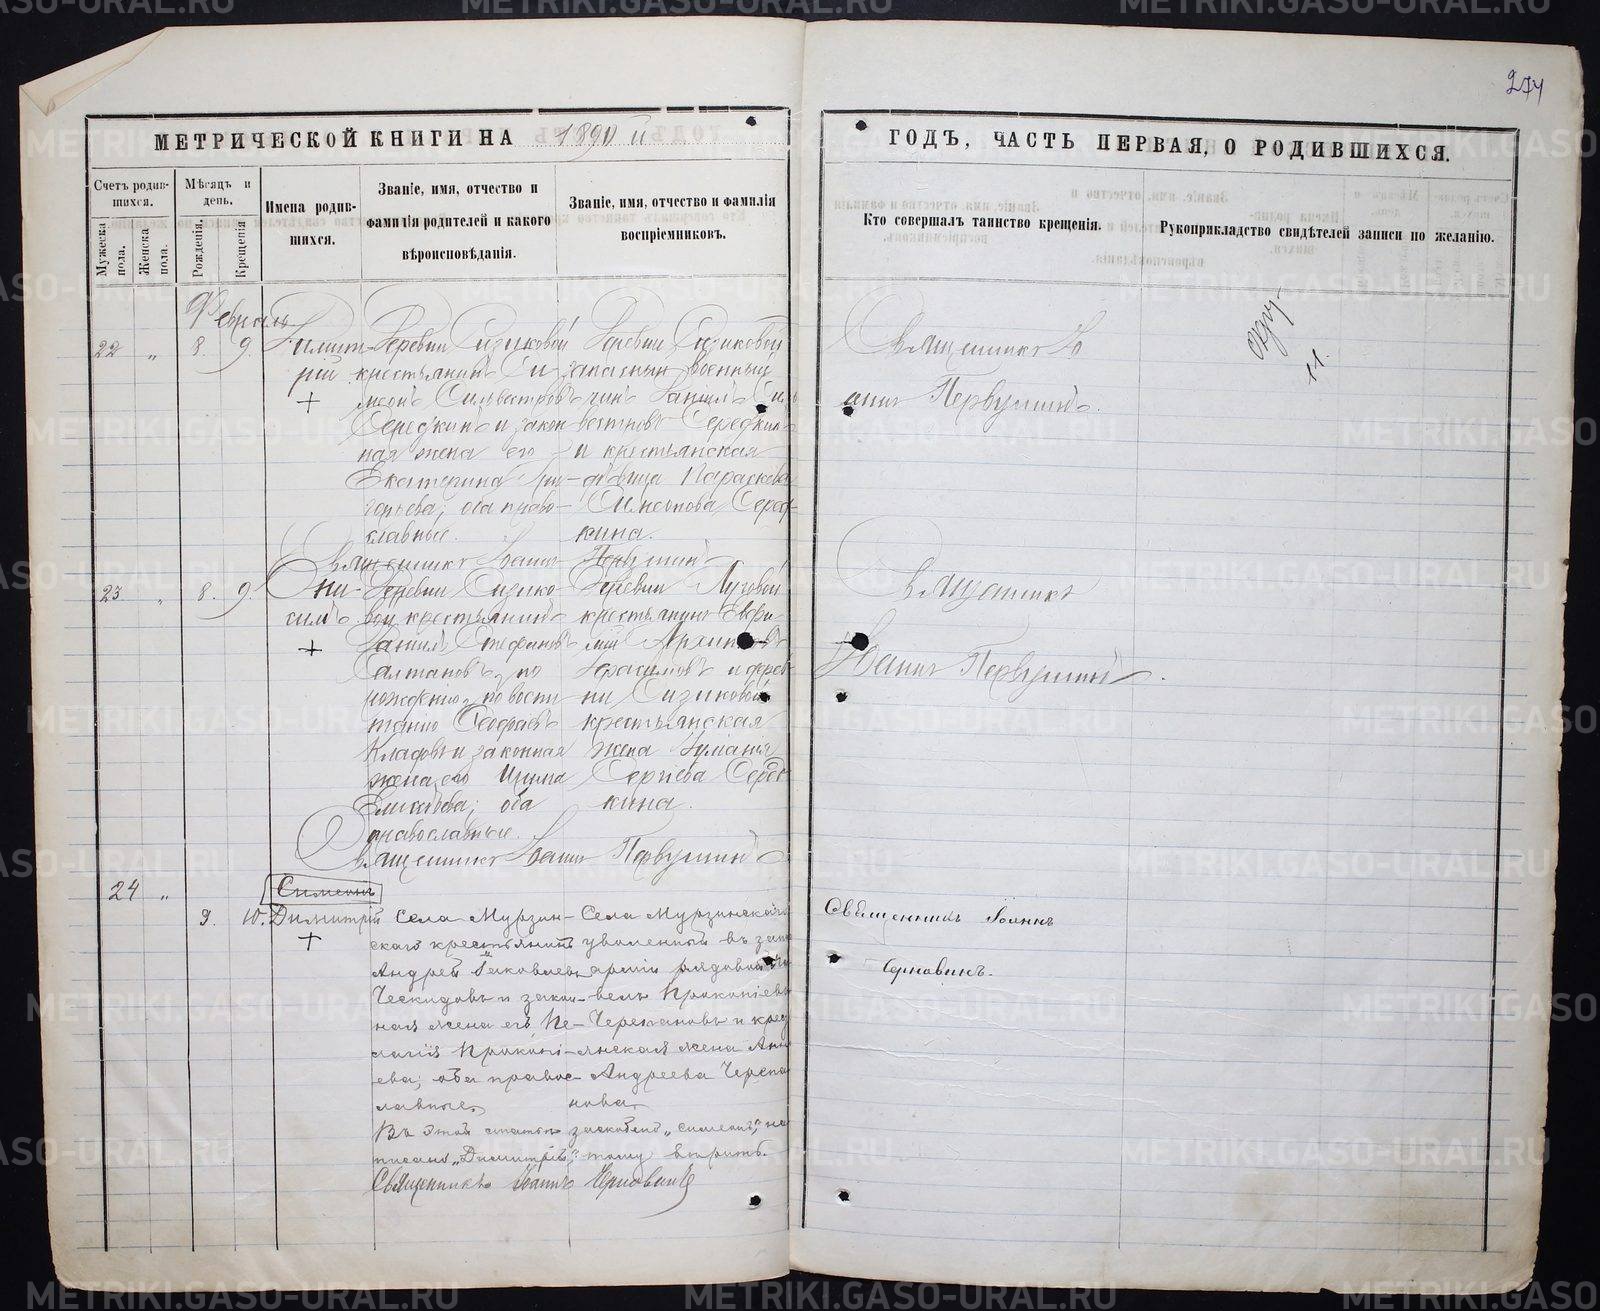 274
МЕТРИЧЕСКОЙ КНИГИ НА 1890 й
ГОДЪ, ЧАСТЬ ПЕРВАЯ, О РОДИВШИХСЯ.
Счетъ родив-
шихся.
Мужеска
пола.
Женска
пола.
Мѣсяцъ и
день.
Рожденія.
Крещенія
Имена родив-
шихся.
Званіе, имя, отчество и
фамилія родителей и какого
вѣроисповѣданія.
Званіе, имя, отчество и фамилія
воспріемниковъ.
Кто совершалъ таинство крещенія.
Рукоприкладство свидѣтелей записи по желанію.
Февраль
22 „ 8. 9. Димит-
рій
Деревни Сизиковой
крестьянинъ Си-
меонъ Сильвестровъ
Середкинъ и закон
ная жена его
Екатерина Гри-
горьева; оба право-
славные.
Деревни Сизиковой
запасный военный
чинъ Даніилъ Сил
вестровъ Середкин
и крестьянская
дѣвица Параскева
Симеонова Серед-
кина.
Священникъ Іо
аннъ Первушинъ.
Священникъ Іоаннъ Первушинъ
23 „ 8. 9. Они-
симъ
Деревни Сизико-
вой крестьянинъ
Даніилъ Стефановъ
Салтановъ, по
рожденію, по воспи-
танію
и законная
жена его Ирина
оба
православные.
Деревни Луговой
крестьянинъ Евфи-
мій Архиповъ
Герасимовъ и дерев
ни Сизиковой
крестьянская
жена Іуліанія
Сергіева Серед
кина.
Священникъ
Іоаннъ Первушинъ.
Священникъ Іоаннъ Первушинъ
24 „ Симеонъ
9. 10. Димитрій
Села Мурзин-
скаго крестьянинъ
Андрей Іаковлевъ
Ческидовъ и закон-
ная жена его Пе-
лагія Прокопі-
ева; оба правос-
лавные.
Села Мурзинскаго
уволенный въ запа
арміи рядовой
Прокопіевъ
Черепановъ и крес
янская жена Анн
Андреева Черепа
нова.
Священникъ Іоаннъ
Черновинъ.
Въ этой статьѣ заскоблено „симеонъ“, на
писано „Димитрій“, тому вѣрить.
Священникъ Іоаннъ Черновинъ